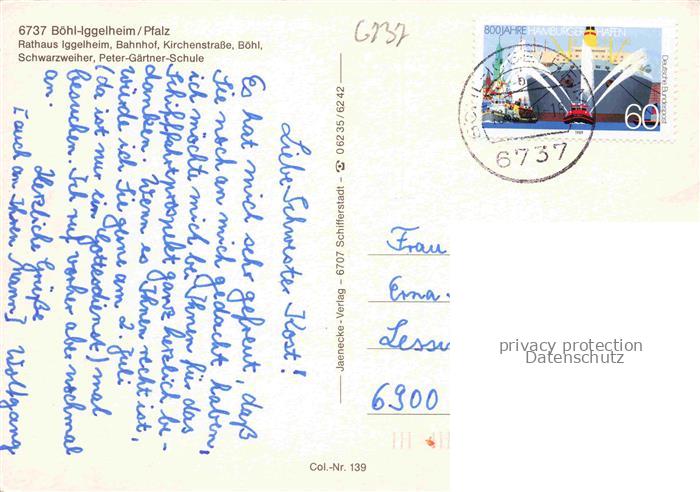 6737 Böhl-Iggelheim/Pfalz
Rathaus Iggelheim, Bahnhof, Kirchenstraße, Böhl,
Schwarzweiher, Peter-Gärtner-Schule
Liebe Schwester Kost!
Es hat mich sehr gefreut, daß
Sie noch an mich gedacht haben,
ich möchte mich bei Ihnen für das
Schiffahrtprospekt ganz herzlich be-
danken. Wenn es Ihnen recht ist,
würde ich Sie gerne am 2. Juli
(da ist nur ein Gottesdienst) mal
besuchen. Ich ruf vorher aber nochmal
an.
Herzliche Grüße
[auch an Ihren Mann] Wolfgang
Jaenecke-Verlag – 6707 Schifferstadt – 0 62 35 / 62 42
Col.-Nr. 139
6737
800 JAHRE HAMBURGER HAFEN
Deutsche Bundespost
60
1989
6737
Frau
Erna
6900
privacy protection
Datenschutz